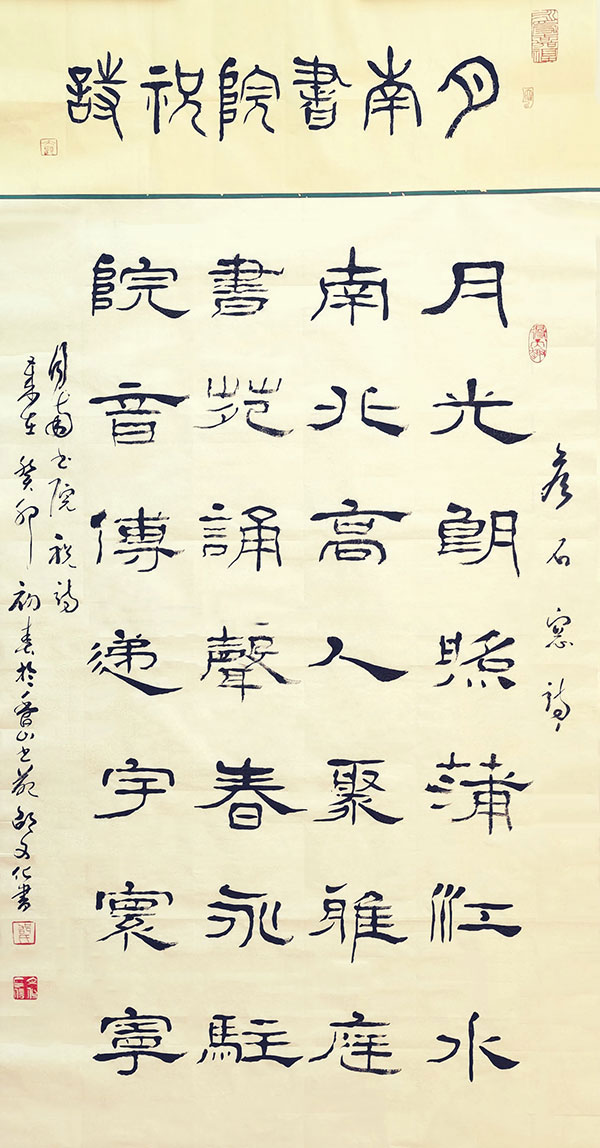 月南書院祝詩
詹石窓詩
月光朗照蒲江水
南北高人聚雅庭
書苑誦聲春永駐
院音傳遞宇寰寧
月南书院祝詩
癸卯初春於香山书苑邵文仁書